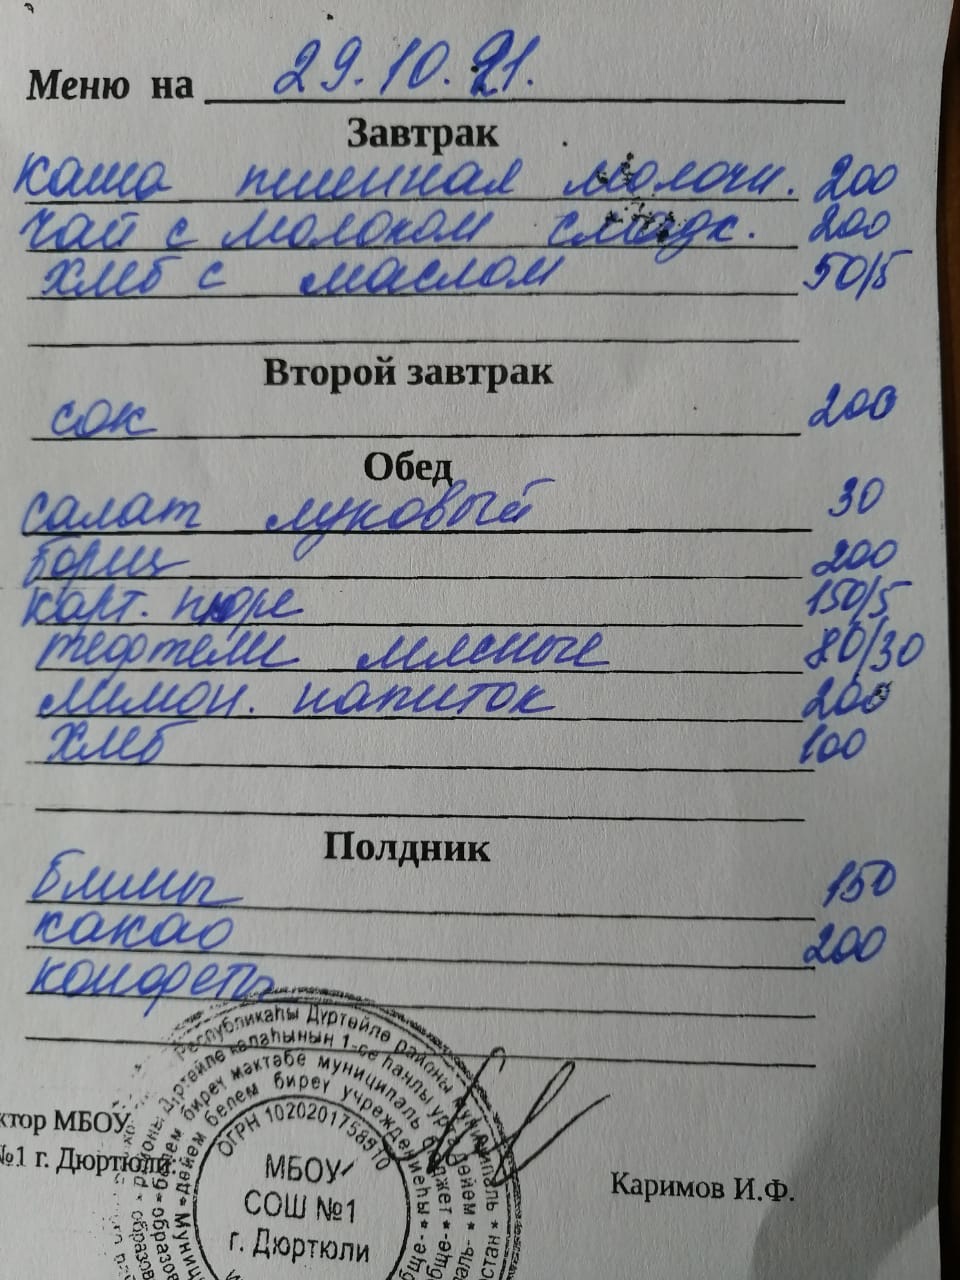 Меню на 29.10.21.
Завтрак
каша пшенная молочн. 200
чай с молоком сладк. 200
хлеб с маслом 50/5
Второй завтрак
сок 200
Обед
салат луковый 30
борщ 200
карт. пюре 150/5
тефтели мясные 80/30
лимон. напиток 200
хлеб 100
Полдник
блины 150
какао 200
конфеты
Республикаһы Дүртөйлө районы муниципаль
Дүртөйлө калаһынын 1-се һанлы урта дөйөм
белем биреү мәктәбе муниципаль бюджет
дөйөм белем биреү учреждениеһы
ОГРН 1020201758910
ктор МБОУ
№1 г. Дюртюли
МБОУ
СОШ №1
г. Дюртюли
Каримов И.Ф.